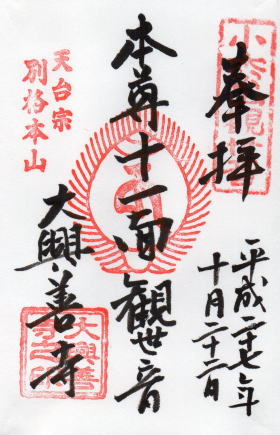 奉拝
平成二十七年
十月二十二日
本尊十一面観世音
天台宗
別格本山
大興善寺
大興善
寺之印